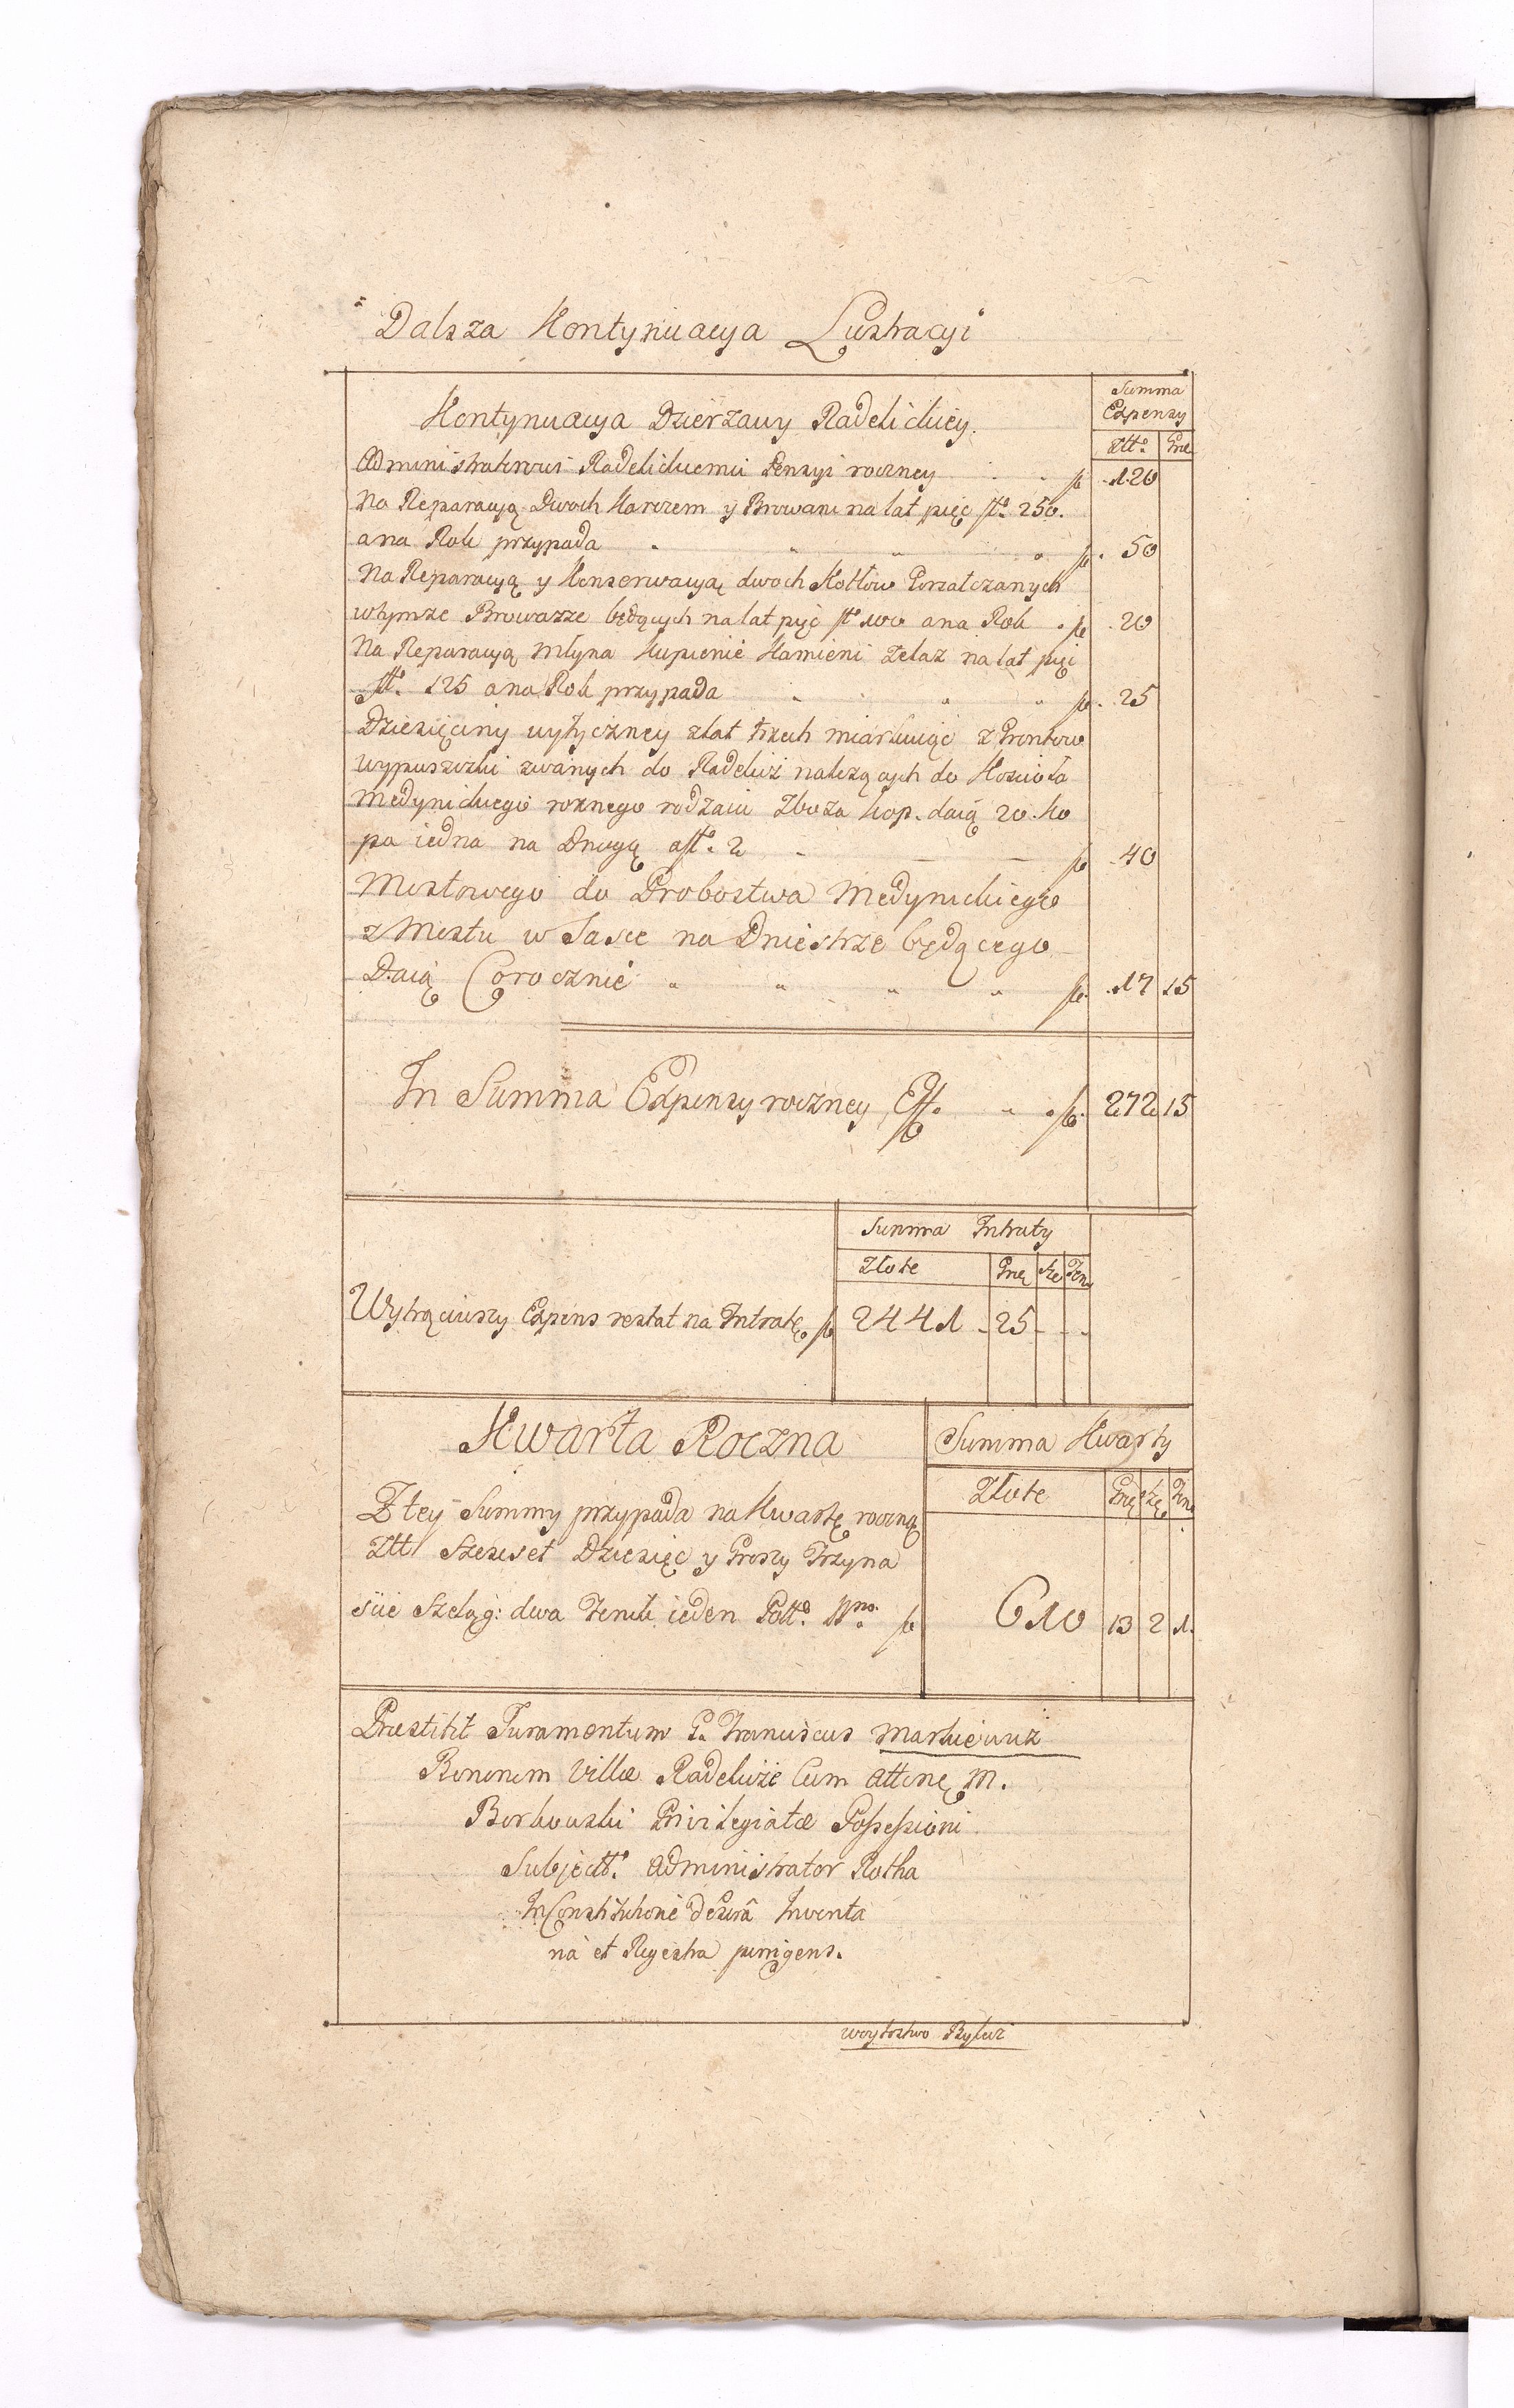 Dalsza Kontynuacya Lustracyi
Summa
Expensy
Kontynuacya Dzierzawy Radelickiey.
Złt. Gre
Administratorowi Radelickiemu Pensyi roczney 120
Na Reparacyą Dwoch Karczem y Browaru na lat pięc złt. 250.
a na Rok przypada 50
Na Reparacyą y Konserwacyą dwoch Kotłow Gorzałczanych
w tymze Browarze będących na lat pięc złt. 100 a na Rok 20
Na Reparacyą Młyna Kupienie Kamieni Zelaz na lat pięc
złt. 125 a na Rok przypada 25
Dziesięciny wytyczney z lat trzech miarkuiąc z Grontow
wypuszczki zwanych do Radelicz nalezących do Koscioła
Medynickiego roznego rodzaiu Zboza kop. daią 20. Ko
pa iedna na Drugą a złt. 2 40
Mostowego do Probostwa Medynickiego
z Mostu w Sasce na Dniestrze będącego
Daią Corocznie 17 15
In Summa Expensy roczney 272 15
Summa Intraty
Złote Gre Sze Fen
Wytrąciwszy Expens restat na Intratę 2441 25
Kwarta Roczna Summa Kwarty
Złote Gre Sze Fen
Z tey Summy przypada na Kwartę roczną
Złt Szescset Dziesięc y Groszy Trzyna
scie Szeląg: dwa Fenik ieden 610 13 2 1.
Praestitit Juramentum G. Franciscus Markiewicz
Bonorum Villae Radelicze Cum Attine, M.
Borkowski Privilegiatae Possessioni
Subject. Administrator Rotha
In Constitutione Inventa
na et Regestra
Woytostwo Rylicz